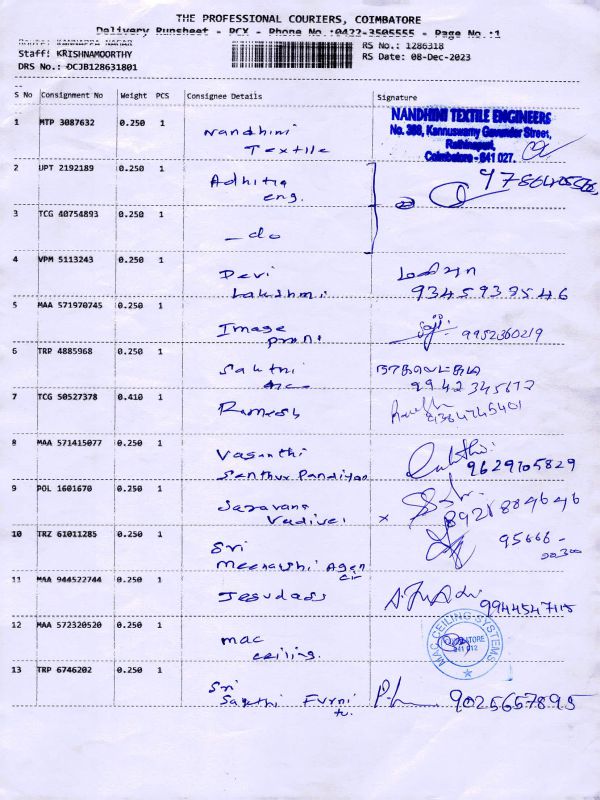 THE PROFESSIONAL COURIERS, COIMBATORE
Delivery Runsheet - PCX - Phone No.:0422-3505555 - Page No.:1
Staff: KRISHNAMOORTHY
RS No.: 1286318
DRS No.: DCJB128631801
RS Date: 08-Dec-2023
S No Consignment No Weight PCS Consignee Details Signature
1 MTP 3087632 0.250 1 Nandhini
Textile
NANDHINI TEXTILE ENGINEERS
Kannuswamy Gavunder Street,
Rathinapuri,
Coimbatore - 641 027.
2 UPT 2192189 0.250 1 Adhitya
eng.
3 TCG 40754893 0.250 1 _do
4 VPM 5113243 0.250 1 Devi
Lakshmi
9345933546
5 MAA 571970745 0.250 1 Image
9952360219
6 TRP 4885968 0.250 1 Sakthi
9942345612
7 TCG 50527378 0.410 1 Ramesh
8 MAA 571415077 0.250 1 Vasanthi
Senthur Pandiyan
9629105829
9 POL 1601670 0.250 1 Saravana
Vadivel x
8921884646
10 TRZ 61011285 0.250 1 Sri
Meenakshi
95666-
11 MAA 944522744 0.250 1 Jesudass
12 MAA 572320520 0.250 1 mac
ceiling.
MAC CEILING SYSTEMS
641 012
13 TRP 6746202 0.250 1 Sri
Sakthi Furni
tu.
9025657895